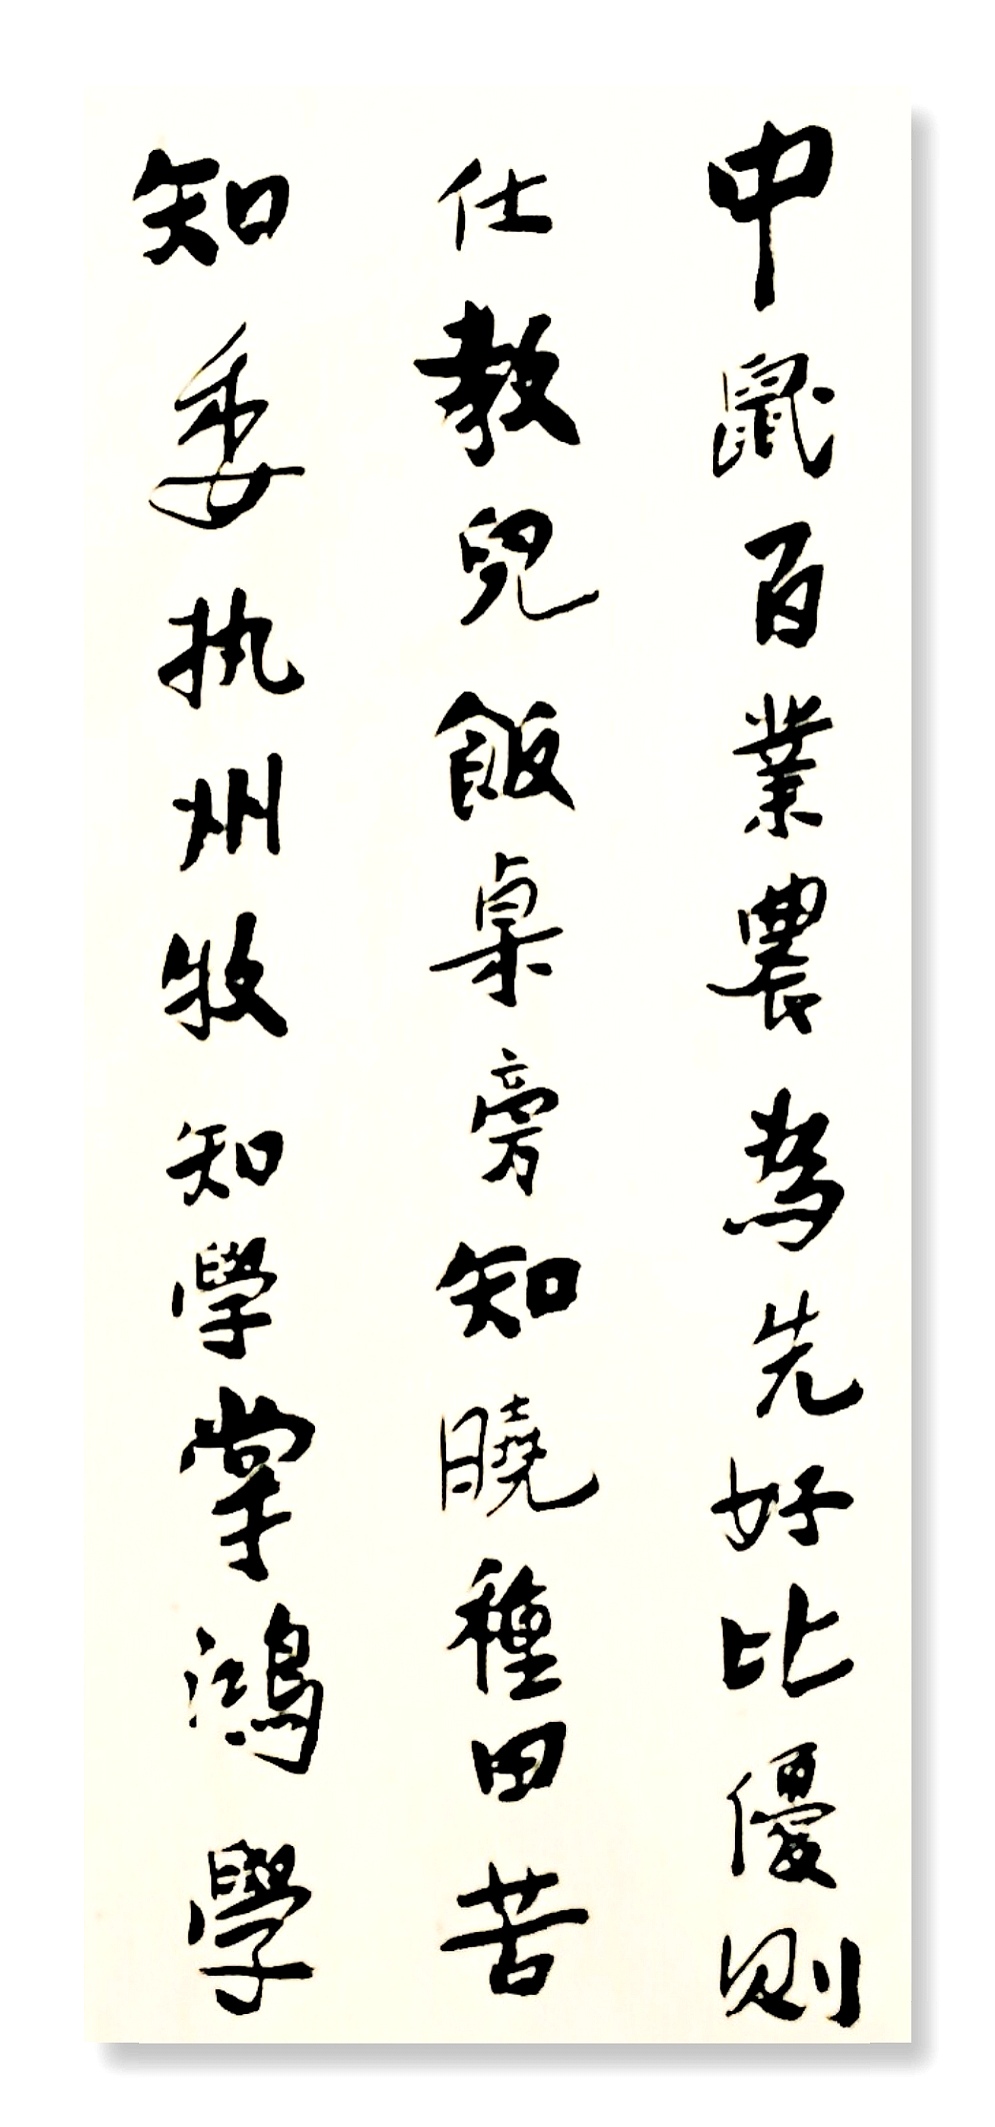 中鼠百業農為先好比優則
仕教兒飯桌旁知曉種田苦
知委执州牧知學掌鴻學